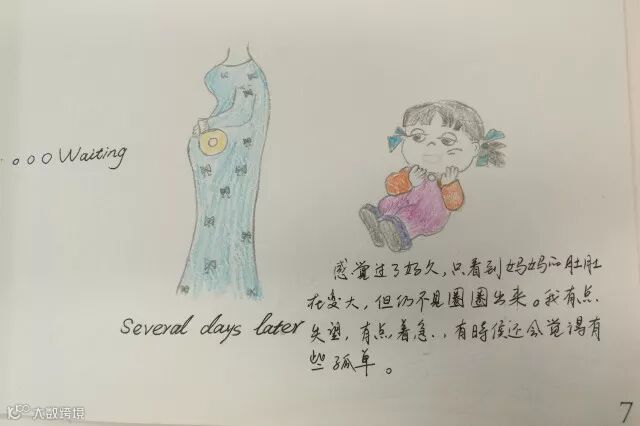 。。。Waiting
Several days later
感觉过了好久，只看到妈妈的肚肚
在变大，但仍不见圈圈出来。我有点
失望，有点着急，有時候还会觉得有
些孤单。
7
大数跨境